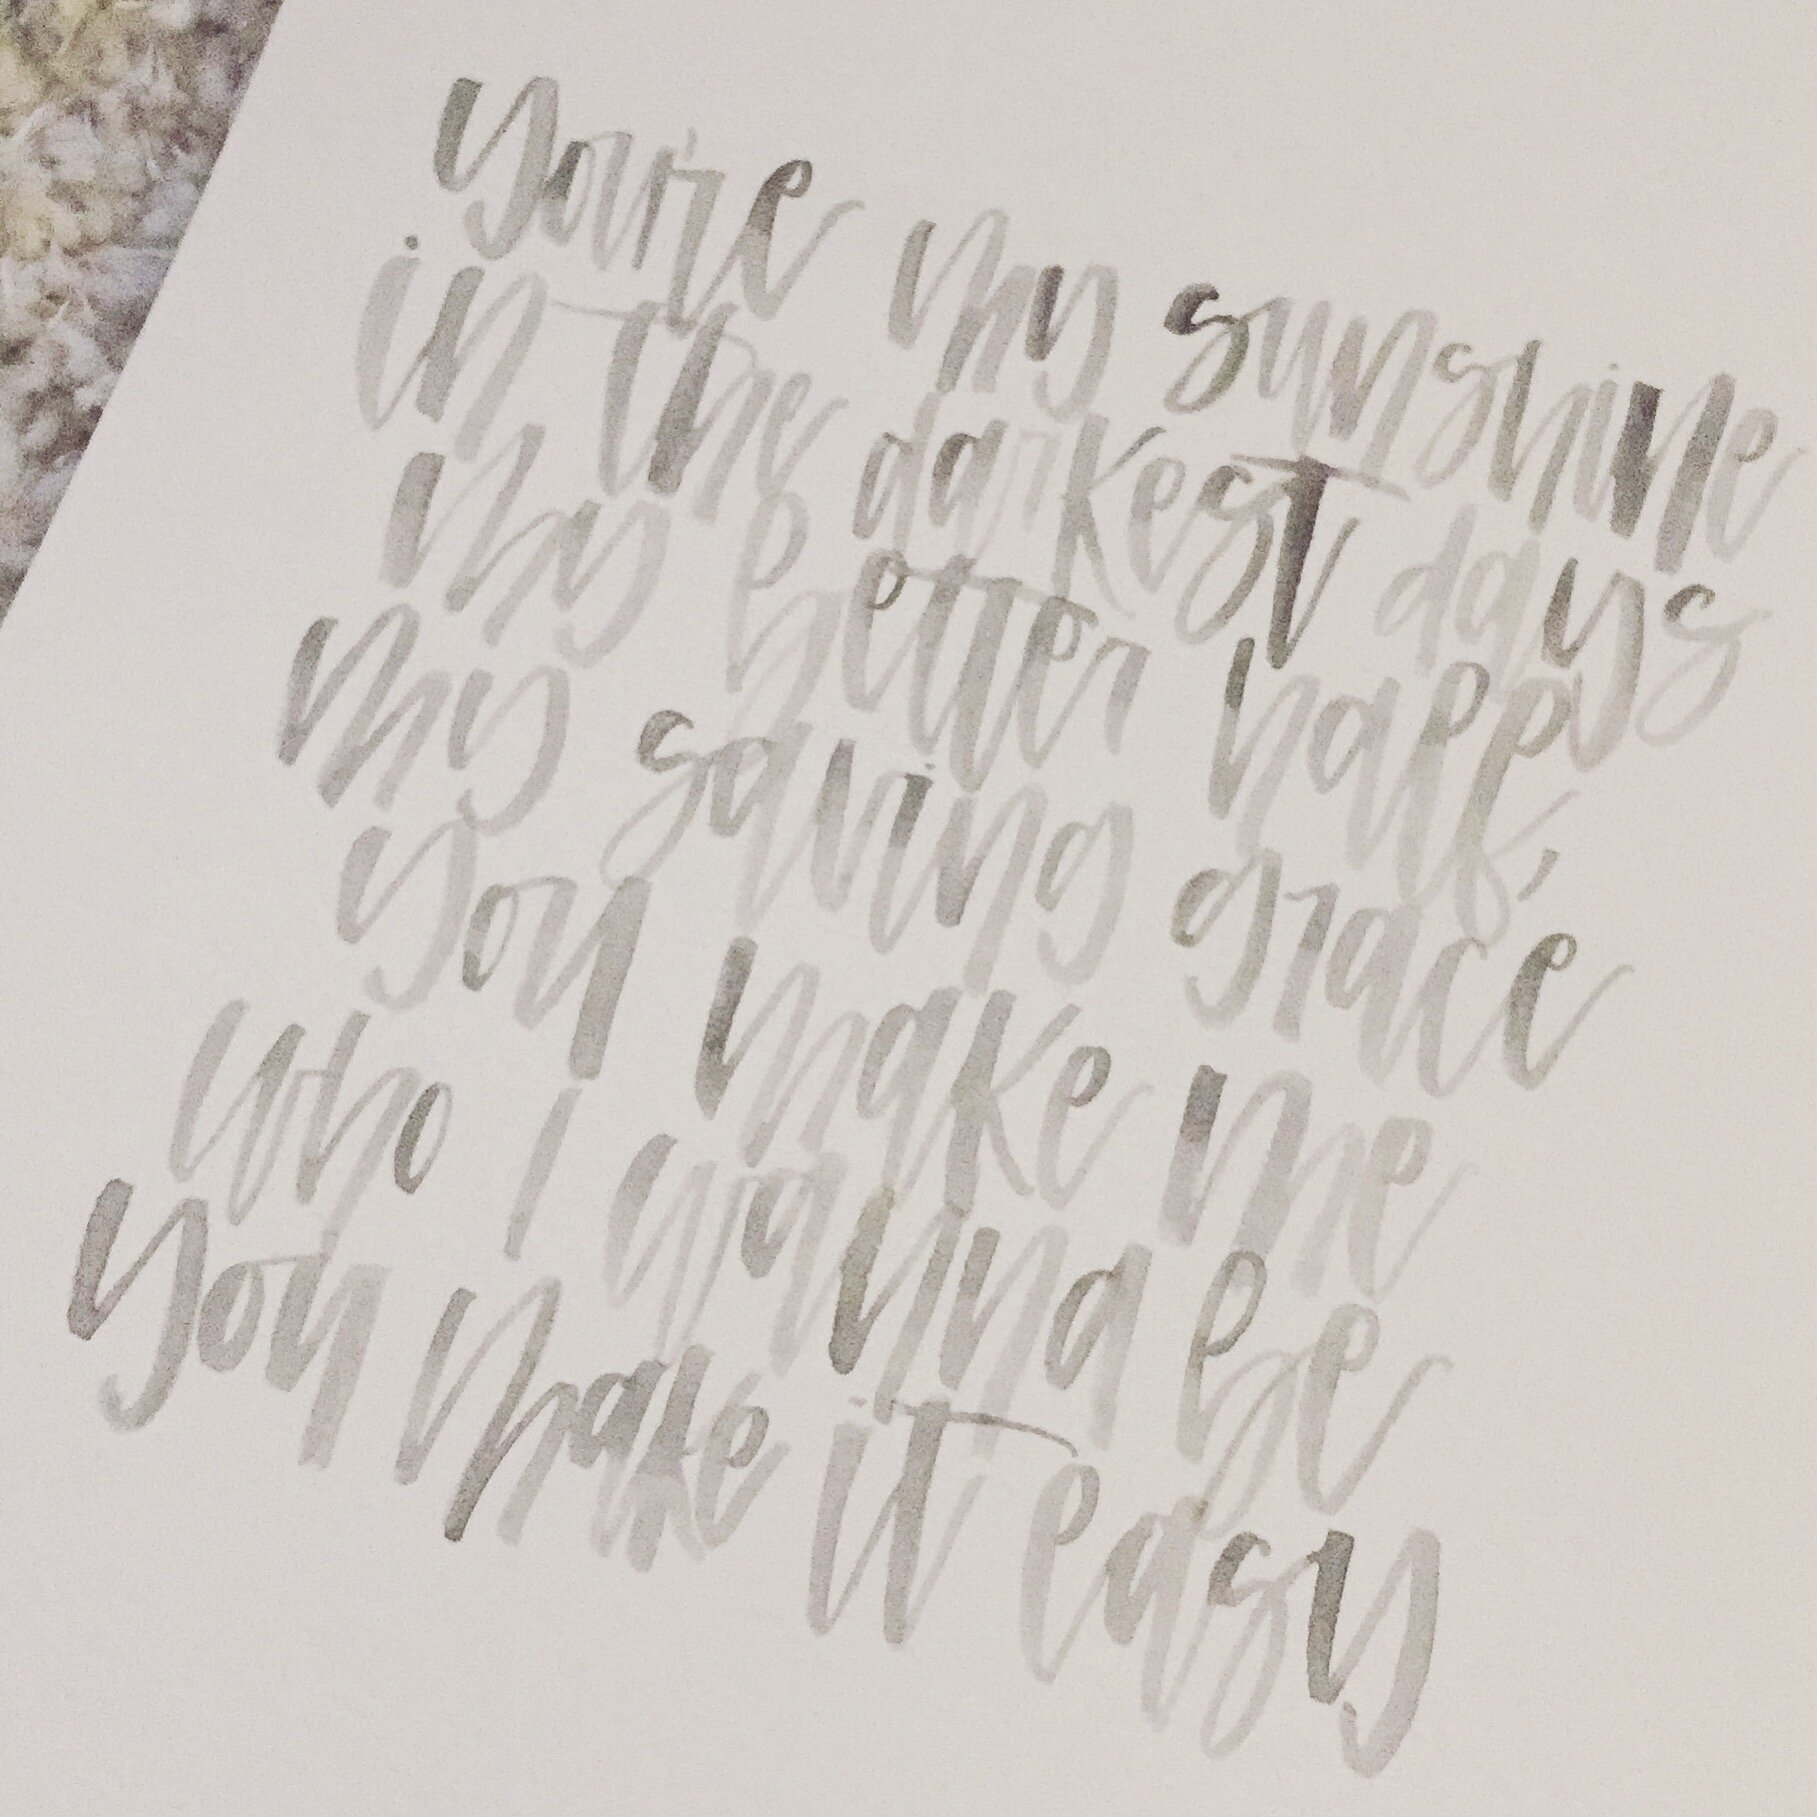 you're my sunshine
in the darkest days
my better half,
my saving grace
you make me
who I wanna be
you make it easy